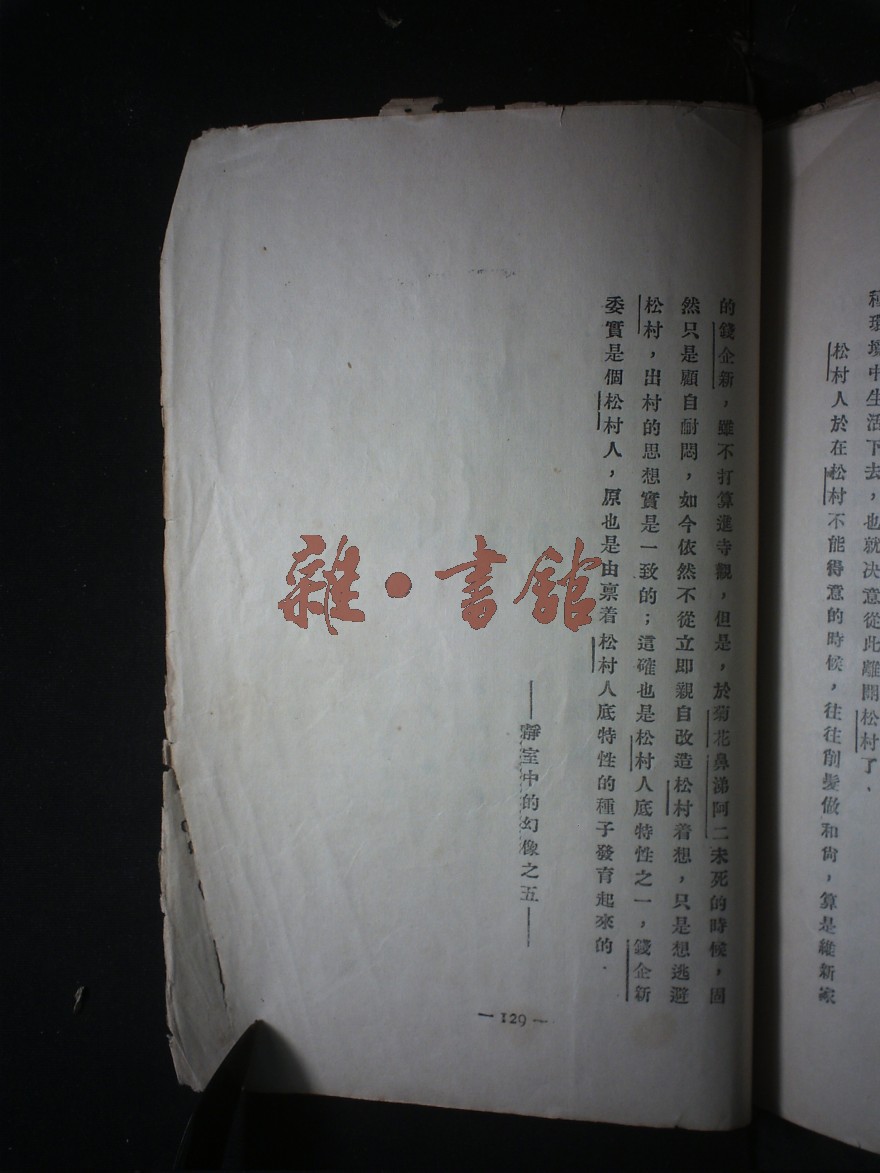 種環境中生活下去，也就决意從此離開松村了．
松村人於在松村不能得意的時候，往往削髮做和尚，算是維新家
的錢企新，雖不打算進寺觀，但是，於菊花鼻涕阿二未死的時候，固
然只是顧自耐悶，如今依然不從立即親自改造松村着想，只是想逃避
松村，出村的思想實是一致的；這確也是松村人底特性之一，錢企新
委實是個松村人，原也是由禀着松村人底特性的種子發育起來的．
——靜室中的幻像之五——
— 129 —
雜·書館